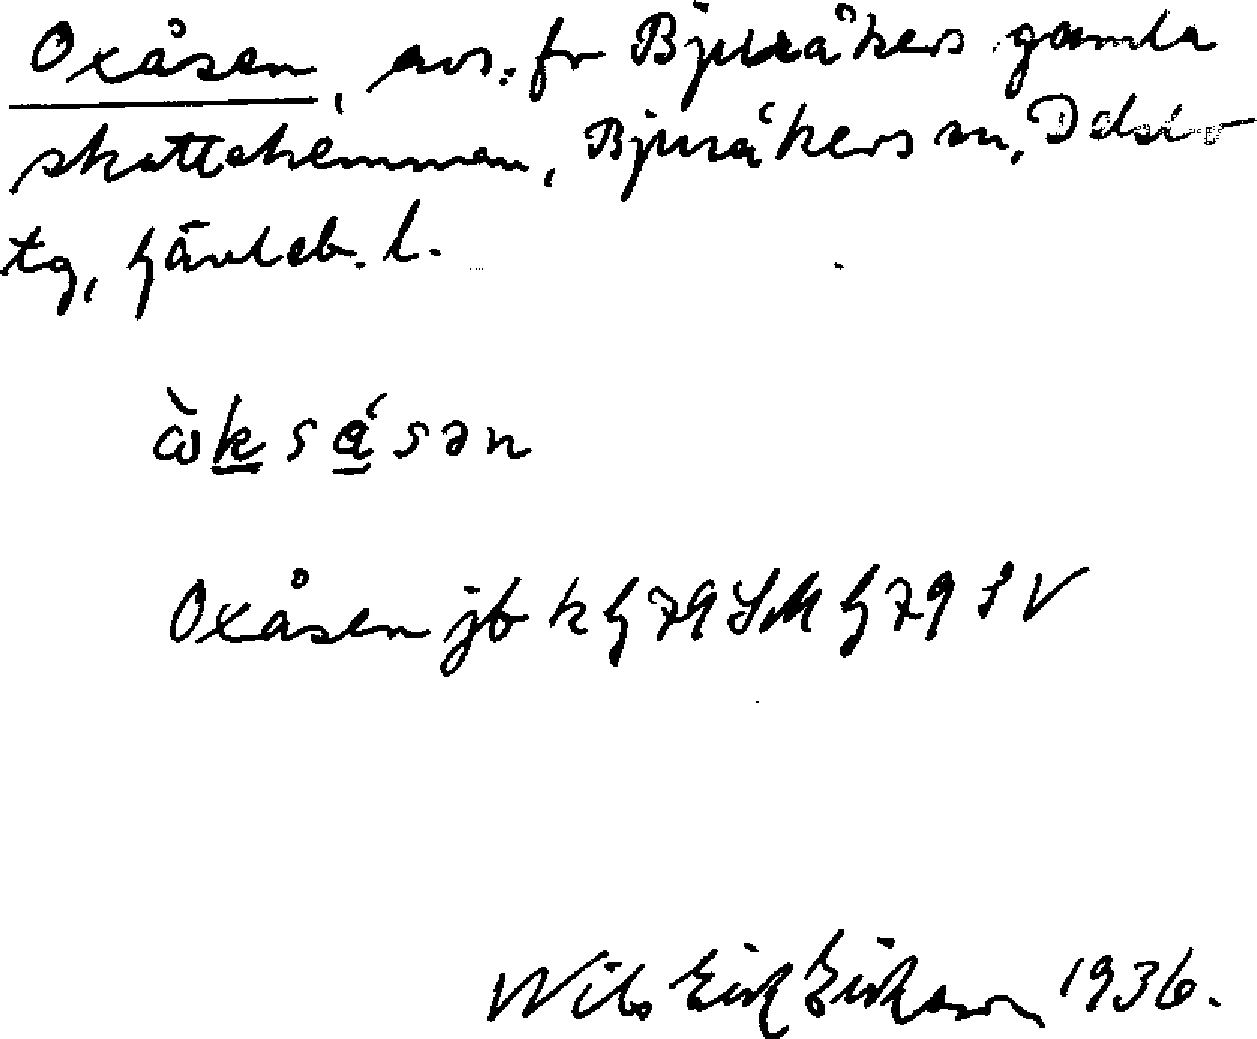 Oxåsen, avs. fr Bjuråkers gamla
skattehemman, Bjuråkers sn, Delsbo
tg, Gävleb. l.
ὼk s á s ə n
Oxåsen jb k G 79 SM G 79 SV
Nils Erik Eriksson 1936.